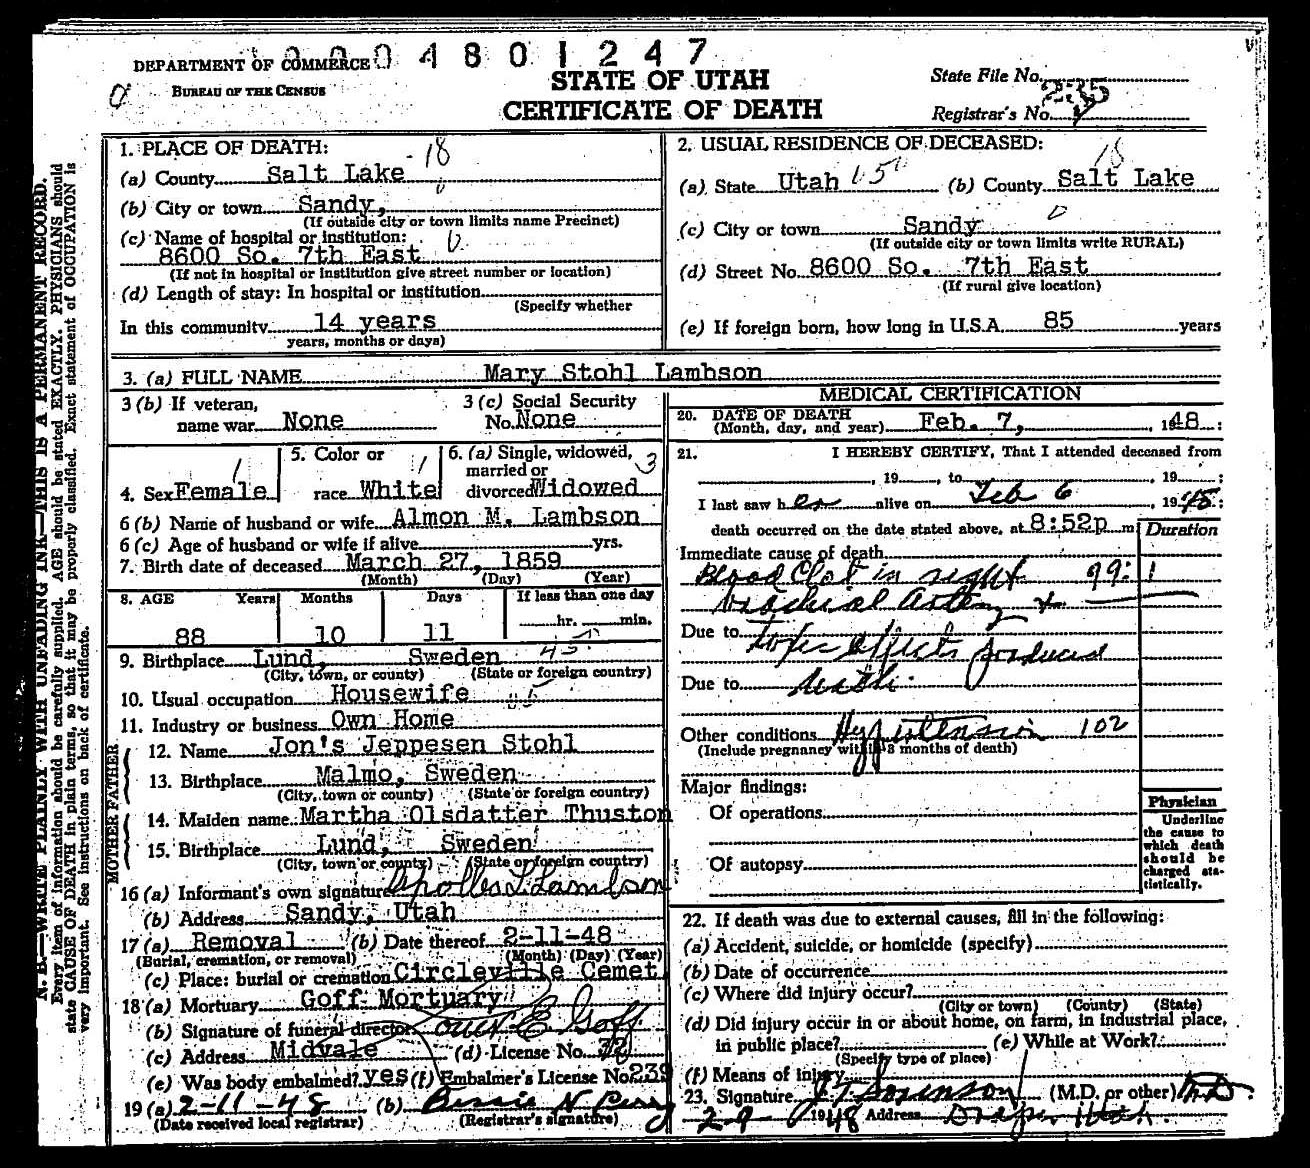 0004801247
DEPARTMENT OF COMMERCE
BUREAU OF THE CENSUS
STATE OF UTAH
CERTIFICATE OF DEATH
State File No.
235
Registrar's No.
1. PLACE OF DEATH: 18
(a) County Salt Lake
(b) City or town Sandy,
(If outside city or town limits name Precinct)
(c) Name of hospital or institution:
8600 So. 7th East
(If not in hospital or institution give street number or location)
(d) Length of stay: In hospital or institution
(Specify whether
In this community 14 years
years, months or days)
2. USUAL RESIDENCE OF DECEASED: 18
(a) State Utah (b) County Salt Lake
(c) City or town Sandy
(If outside city or town limits write RURAL)
(d) Street No. 8600 So. 7th East
(If rural give location)
(e) If foreign born, how long in U.S.A. 85 years
3. (a) FULL NAME Mary Stohl Lambson
3 (b) If veteran,
name war None
3 (c) Social Security
No. None
4. Sex Female 1
5. Color or
race White 1
6. (a) Single, widowed,
married or 3
divorced Widowed
6 (b) Name of husband or wife Almon M. Lambson
6 (c) Age of husband or wife if alive yrs.
7. Birth date of deceased March 27, 1859
(Month) (Day) (Year)
8. AGE Years Months Days If less than one day
88 10 11 hr. min.
9. Birthplace Lund, Sweden 45
(City, town, or county) (State or foreign country)
10. Usual occupation Housewife
11. Industry or business Own Home
FATHER
12. Name Jon's Jeppesen Stohl
13. Birthplace Malmo, Sweden
(City, town or county) (State or foreign country)
MOTHER
14. Maiden name Martha Olsdatter Thuston
15. Birthplace Lund, Sweden
(City, town or county) (State or foreign country)
16 (a) Informant's own signature Apollos L Lambson
(b) Address Sandy, Utah
17 (a) Removal (b) Date thereof 2-11-48
(Burial, cremation, or removal) (Month) (Day) (Year)
(c) Place: burial or cremation Circleville Cemet
18 (a) Mortuary Goff Mortuary
(b) Signature of funeral director E. Goff
(c) Address Midvale (d) License No. 32
(e) Was body embalmed? yes (f) Embalmer's License No. 239
19 (a) 2-11-48 (b) Bessie N
(Date received local registrar) (Registrar's signature)
MEDICAL CERTIFICATION
20. DATE OF DEATH
(Month, day, and year) Feb. 7, 1948
21. I HEREBY CERTIFY, That I attended deceased from
, 19 , to , 19 :
I last saw her alive on Feb 6 1948:
death occurred on the date stated above, at 8:52p m
Duration
Immediate cause of death
Blood Clot in right 99:1
brachial Artery +
Due to toxic effects produced
Due to death.
Other conditions Hypertension 102
(Include pregnancy within 3 months of death)
Major findings:
Of operations
Of autopsy
Physician
Underline
the cause to
which death
should be
charged sta-
tistically.
22. If death was due to external causes, fill in the following:
(a) Accident, suicide, or homicide (specify)
(b) Date of occurrence
(c) Where did injury occur?
(City or town) (County) (State)
(d) Did injury occur in or about home, on farm, in industrial place,
in public place? (e) While at Work?
(Specify type of place)
(f) Means of injury
23. Signature Sorenson (M.D. or other) M.D.
2-9- 1948 Address Draper Utah.
N. B.—WRITE PLAINLY WITH UNFADING INK—THIS IS A PERMANENT RECORD.
Every item of information should be carefully supplied. AGE should be stated EXACTLY. PHYSICIANS should
state CAUSE OF DEATH in plain terms, so that it may be properly classified. Exact statement of OCCUPATION is
very important. See instructions on back of certificate.